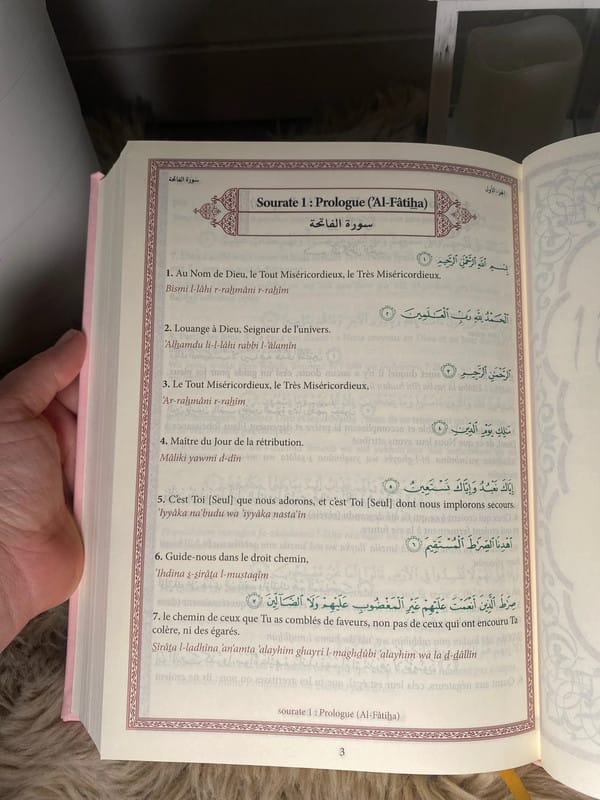 سورة الفاتحة
الجزء الأول
Sourate 1 : Prologue ('Al-Fâtiḥa)
سورة الفاتحة
بِسْمِ اللَّهِ الرَّحْمَٰنِ الرَّحِيمِ ١
1. Au Nom de Dieu, le Tout Miséricordieux, le Très Miséricordieux.
Bismi l-lâhi r-raḥmâni r-raḥîm
الْحَمْدُ لِلَّهِ رَبِّ الْعَالَمِينَ ٢
2. Louange à Dieu, Seigneur de l'univers.
'Alḥamdu li-l-lâhi rabbi l-'âlamîn
الرَّحْمَٰنِ الرَّحِيمِ ٣
3. Le Tout Miséricordieux, le Très Miséricordieux,
'Ar-raḥmâni r-raḥîm
مَالِكِ يَوْمِ الدِّينِ ٤
4. Maître du Jour de la rétribution.
Mâliki yawmi d-dîn
إِيَّاكَ نَعْبُدُ وَإِيَّاكَ نَسْتَعِينُ ٥
5. C'est Toi [Seul] que nous adorons, et c'est Toi [Seul] dont nous implorons secours.
'Iyyâka na'budu wa 'iyyâka nasta'în
اهْدِنَا الصِّرَاطَ الْمُسْتَقِيمَ ٦
6. Guide-nous dans le droit chemin,
'Ihdina ṣ-ṣirâṭa l-mustaqîm
صِرَاطَ الَّذِينَ أَنْعَمْتَ عَلَيْهِمْ غَيْرِ الْمَغْضُوبِ عَلَيْهِمْ وَلَا الضَّالِّينَ ٧
7. le chemin de ceux que Tu as comblés de faveurs, non pas de ceux qui ont encouru Ta
colère, ni des égarés.
Ṣirâṭa l-ladhîna 'an'amta 'alayhim ghayri l-maghḍûbi 'alayhim wa la ḍ-ḍâllîn
sourate 1 : Prologue (Al-Fâtiḥa)
3